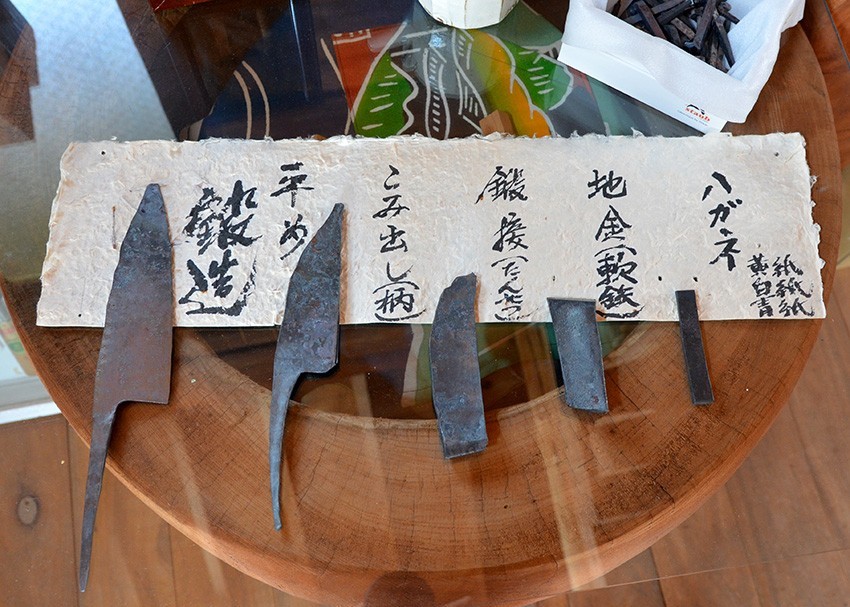 ハガネ
黄紙
白紙
青紙
地金(軟鉄)
鍛接(たんせつ)
こみ出し(柄)
平め
鍛造
staub